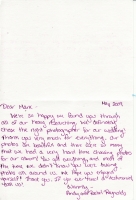 May 2008
Dear Mark,
We're so happy we found you through
all of our many searching. We definitely
chose the right photographer for our wedding!
Thank you very much for everything. Our
photos are beautiful and
that we had a very hard time choosing photos
for our album! You got everything, and most of
the time we didn't know you were taking
photos of us and we hope you enjoyed
yourself. Thank you, if
Sincerely,
Andy and Rachel Reynolds